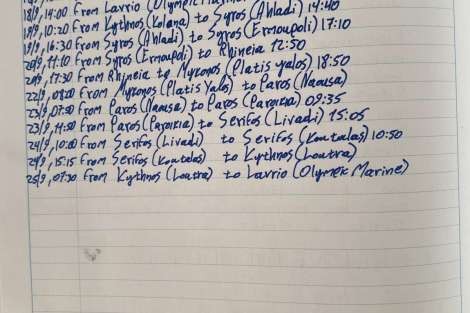 18/9, 14:00 from Lavrio (Olympic
19/9, 10:20 from Kythnos (Kolona) to Syros (Ahladi) 14:40
19/9, 16:30 from Syros (Ahladi) to Syros (Ermoupoli) 17:10
20/9, 11:10 from Syros (Ermoupoli) to Rhineia 12:50
20/9, 17:30 from Rhineia to Mykonos (Platis yalos) 18:50
22/9, 08:00 from Mykonos (Platis Yalos) to Paros (Naousa)
23/9, 07:50 from Paros (Naousa) to Paros (Paroikia) 09:35
23/9, 11:50 from Paros (Paroikia) to Serifos (Livadi) 15:05
24/9, 10:00 from Serifos (Livadi) to Serifos (Koutalas) 10:50
24/9, 15:15 from Serifos (Koutalas) to Kythnos (Loutra)
25/9, 07:30 from Kythnos (Loutra) to Lavrio (Olympic Marine)